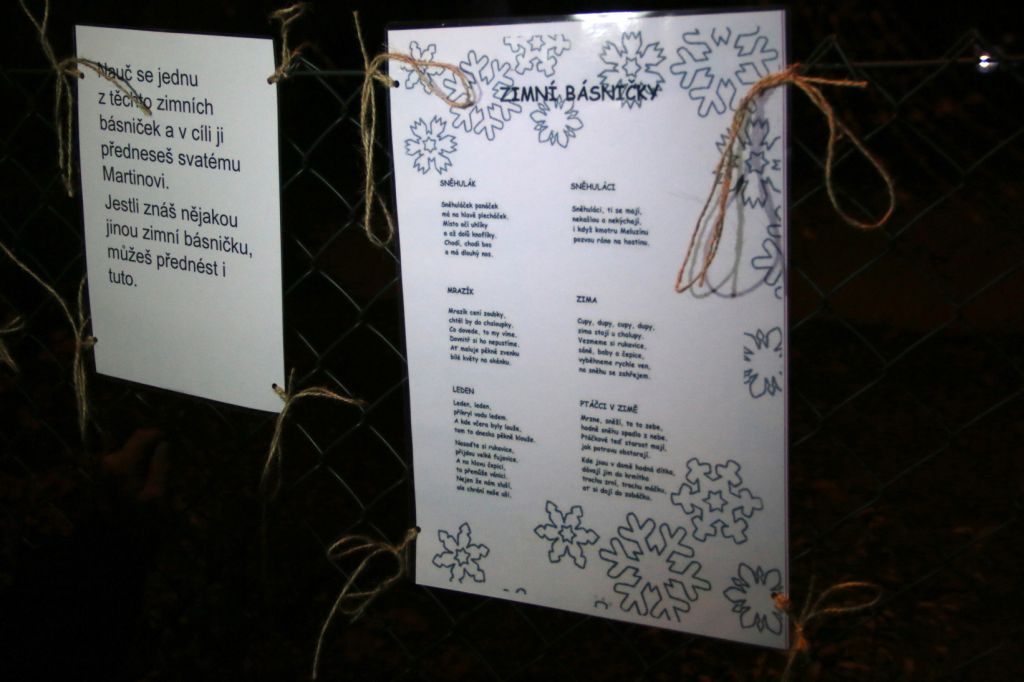 Nauč se jednu
z těchto zimních
básniček a v cíli ji
předneseš svatému
Martinovi.
Jestli znáš nějakou
jinou zimní básničku,
můžeš přednést i
tuto.
ZIMNÍ BÁSNIČKY
SNĚHULÁK
Sněhuláček panáček
má na hlavě plecháček.
Místo očí uhlíky
a až dolů knoflíky.
Chodí, chodí bos
a má dlouhý nos.
SNĚHULÁCI
Sněhuláci, ti se mají,
nekašlou a nekýchají,
i když kmotru Meluzínu
pozvou ráno na hostinu.
MRAZÍK
Mrazík cení zoubky,
chtěl by do chaloupky.
Co dovede, to my víme.
Dovnitř si ho nepustíme.
Ať maluje pěkně zvenku
bílé květy na okénku.
ZIMA
Cupy, dupy, cupy, dupy,
zima stojí u chalupy.
Vezmeme si rukavice,
sáně, boby a čepice,
vyběhneme rychle ven,
na sněhu se zahřejem.
LEDEN
Leden, leden,
přikryl vodu ledem.
A kde včera byly louže,
tam to dneska pěkně klouže.
Nasaďte si rukavice,
přijdou velké fujavice.
A na hlavu čepici,
ta přemůže vánici.
Nejen že nám sluší,
ale chrání naše uši.
PTÁČCI V ZIMĚ
Mrzne, sněží, to to zebe,
hodně sněhu spadlo z nebe.
Ptáčkové teď starost mají,
jak potravu obstarají.
Kde jsou v domě hodná dítka,
dávají jim do krmítka
trochu zrní, trochu máčku,
ať si dají do zobáčku.